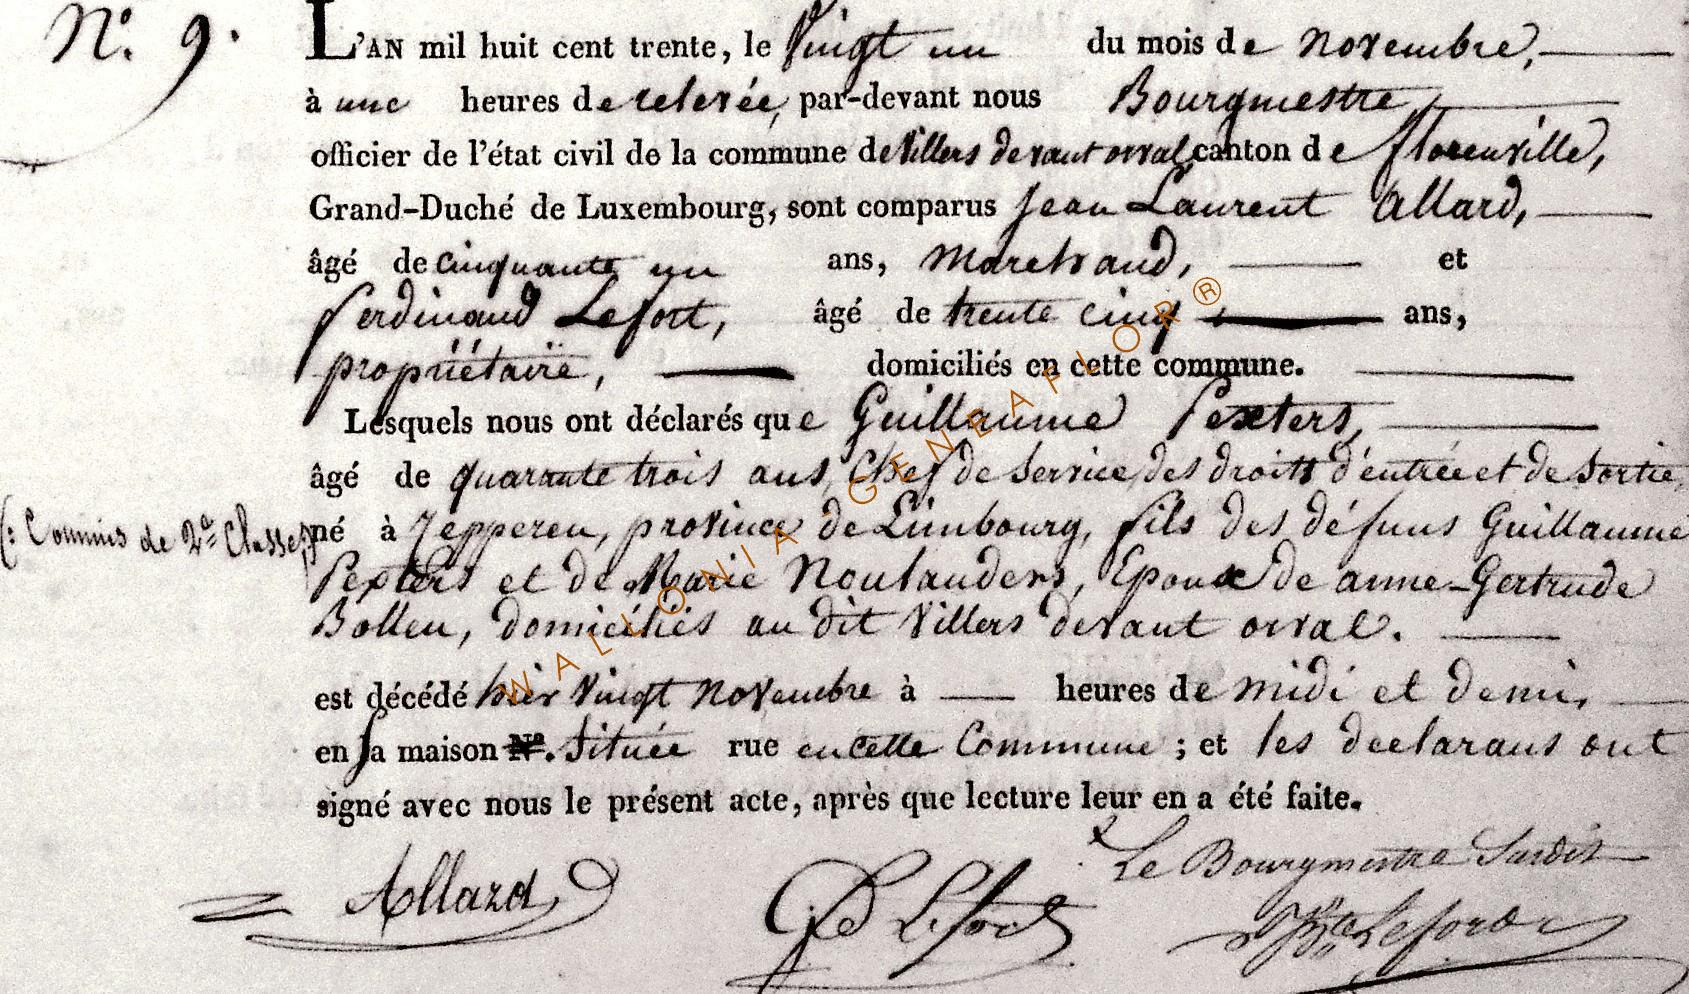 N.o 9.
L'AN mil huit cent trente, le vingt un du mois de novembre,
à une heures de relevée, par-devant nous Bourgmestre,
officier de l'état civil de la commune de Villers devant orval, canton de florenville,
Grand-Duché de Luxembourg, sont comparus Jean Laurent Allard,
âgé de cinquante un ans, Marchand, et
ferdinand Lefort, âgé de trente cinq ans,
propriétaire, domiciliés en cette commune.
Lesquels nous ont déclarés que Guillaume Pexters,
âgé de quarante trois ans, Chef de Service des droits d'entrée et de Sortie,
(: Commis de 2e Classe:)
né à Zepperen, province de Limbourg, fils des défuns Guillaume
Pexters et de Marie Noulanders, Epoux de anne-Gertrude
Bollen, domiciliés au dit Villers devant orval.
est décédé hier vingt novembre à heures de midi et demi,
en sa maison No. Située rue en cette Commune ; et les declarans ont
signé avec nous le présent acte, après que lecture leur en a été faite.
Le Bourgmestre Susdit
Allard Fd Lefort Lefort
WALLONIA-GENEAFLOR®